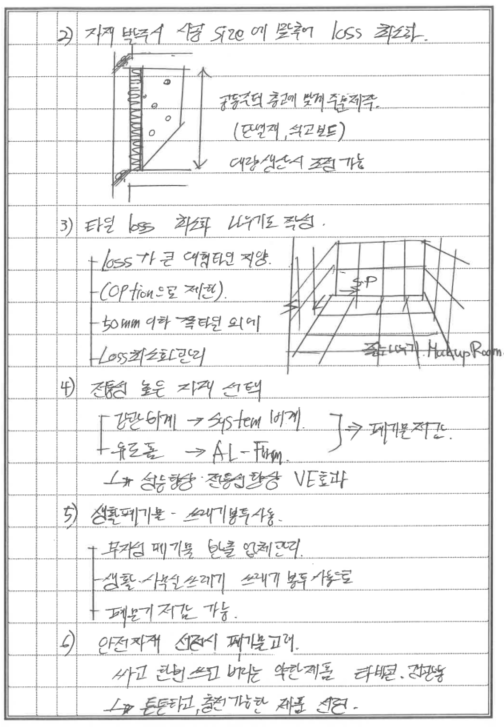 2) 자재 발주시 시공 size에 맞추어 loss 최소화.
공동주택 층고에 맞게 주문제작.
(단열재, 석고보드)
대량생산시 조절 가능
3) 타일 loss 최소화 나누기도 작성.
- loss가 큰 대형타일 지양.
- (Option으로 제한).
- 50mm 이하 쪽타일 외에
- Loss최소화관리
S.P
줄눈나누기. MakupRoom
4) 전용성 높은 자재 선택
강관비계 → System 비계.
- 유로폼 → AL-Form.
⇒ 폐기물저감.
↳ 성능향상 전용성향상 VE효과
5) 생활폐기물 - 쓰레기봉투사용.
- 무자성 폐기물 반출 업체관리.
- 생활·사무실쓰레기 쓰레기 봉투사용도
- 폐물기저감 가능.
6) 안전자재 선정시 폐기물고려.
싸고 한번 쓰고 버리는 약한제품
↳ 튼튼하고, 충전가능한 제품 선정.